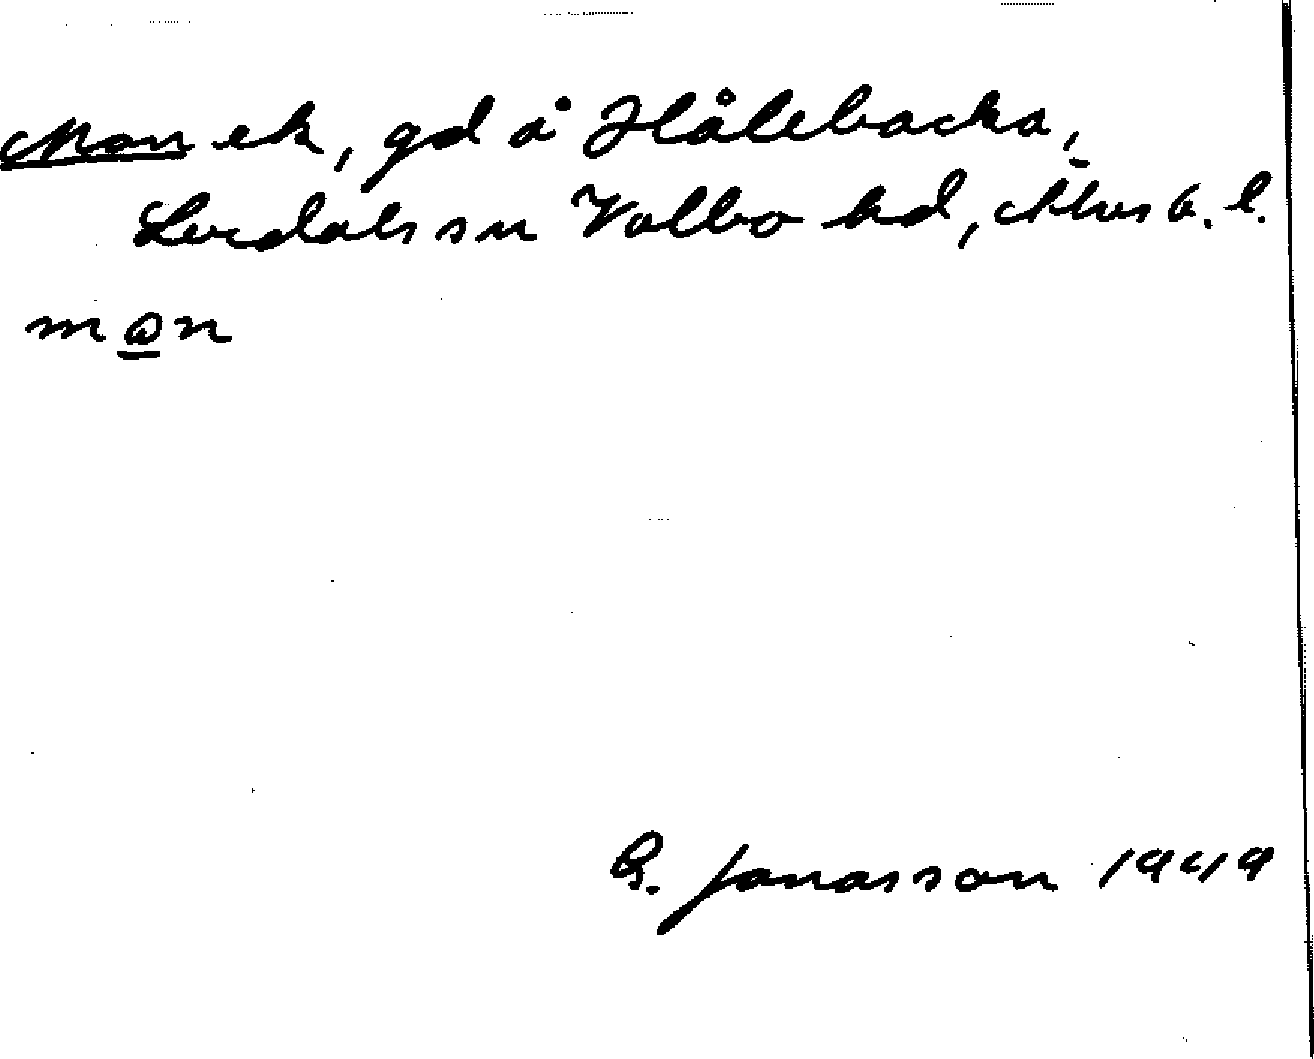 Mon ek, gd å Hålebacka,
Lerdals sn Valbo hd, Älvsb. l.
mon
G. Jonasson 1949